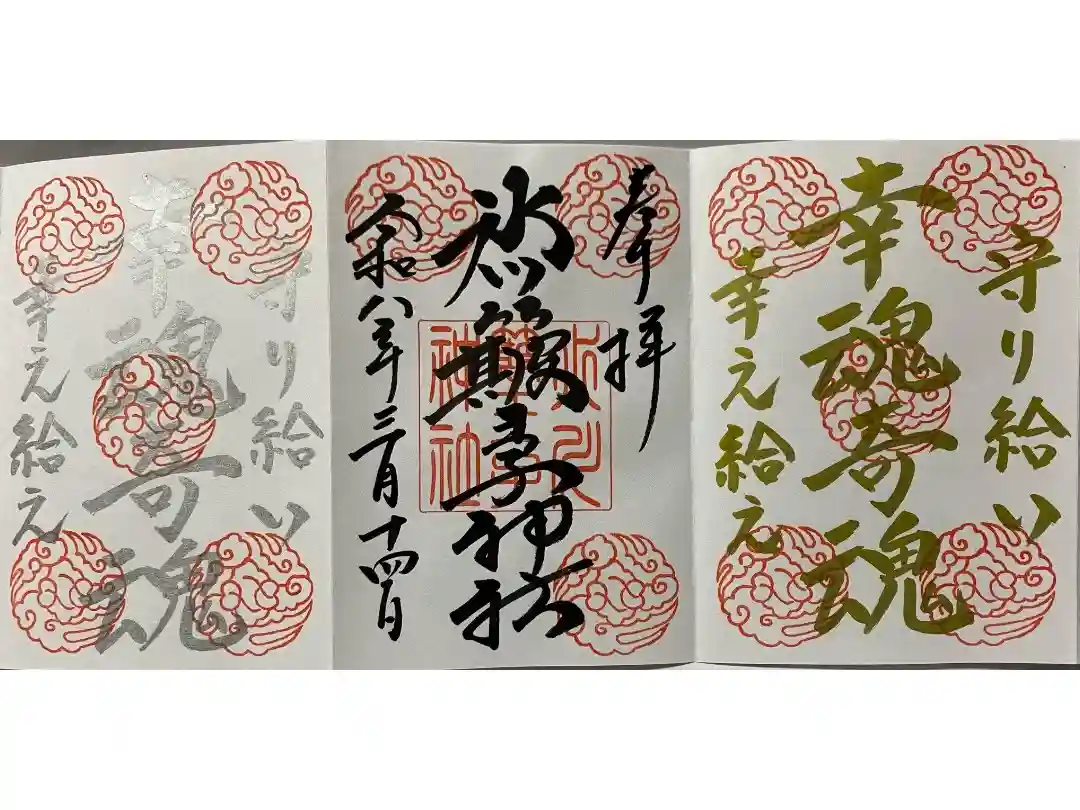 守り給い
幸魂奇魂
幸え給え
奉拝
氷川簸王子神社
氷川
簸王子
神社
令和八年三月十四日
守り給い
幸魂奇魂
幸え給え